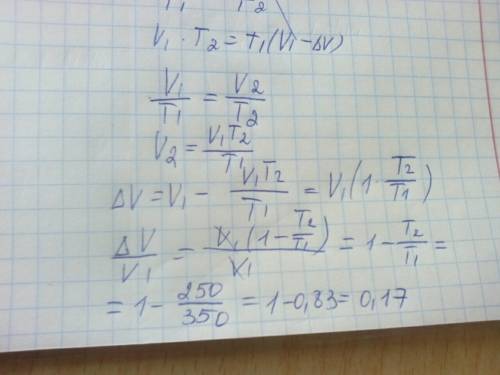 T₁ T₂
V₁ · T₂ = T₁(V₁ - ΔV)
V₁/T₁ = V2/T2
V2 = V₁T2/T₁
ΔV = V₁ - V₁T2/T₁ = V₁(1 - T2/T1)
ΔV/V₁ = V₁(1 - T2/T₁)/V₁ = 1 - T2/T₁ =
= 1 - 250/350 = 1 - 0,83 = 0,17